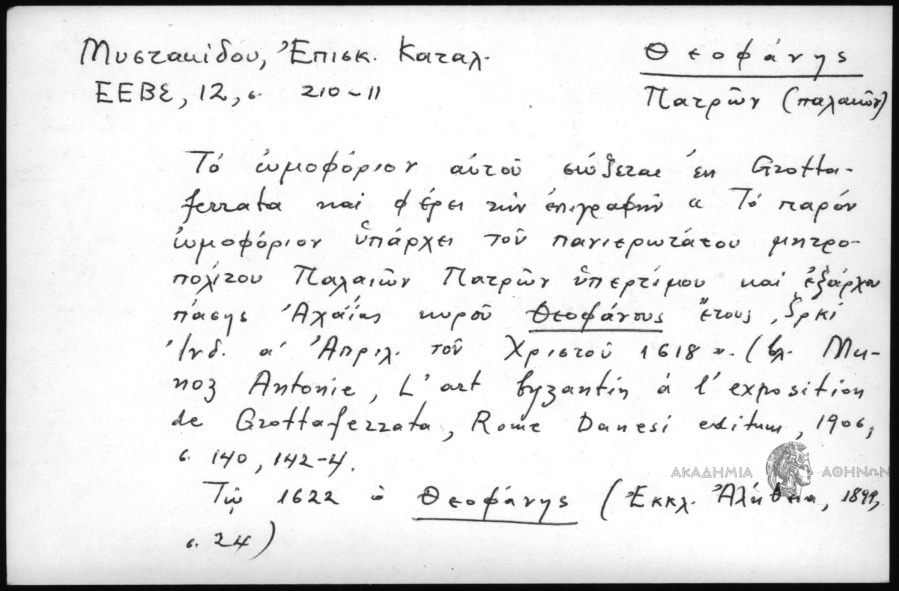 Μυστακίδου, Ἐπισκ. Καταλ.
ΕΕΒΣ, 12, σ. 210-11
Θεοφάνης
Πατρῶν (παλαιῶν)
Τό ὠμοφόριον αὐτοῦ σώζεται ἐν Grotta-
ferrata καί φέρει τήν ἐπιγραφήν « Τό παρόν
ὠμοφόριον ὑπάρχει τοῦ πανιερωτάτου μητρο-
πολίτου Παλαιῶν Πατρῶν ὑπερτίμου καί ἐξάρχου
πάσης Ἀχαΐας κυροῦ Θεοφάνους ἔτους ͵ζρκί
Ἰνδ. α΄ Ἀπριλ. τοῦ Χριστοῦ 1618 ». (βλ. Mu-
noz Antonie, L'art byzantin á l'exposition
de Grottaferrata, Rome Danesi editum, 1906,
σ. 140, 142-4.
Τῷ 1622 ὁ Θεοφάνης (Ἐκκλ. Ἀλήθεια, 1899,
σ. 24)
ΑΚΑΔΗΜΙΑ ΑΘΗΝΩΝ